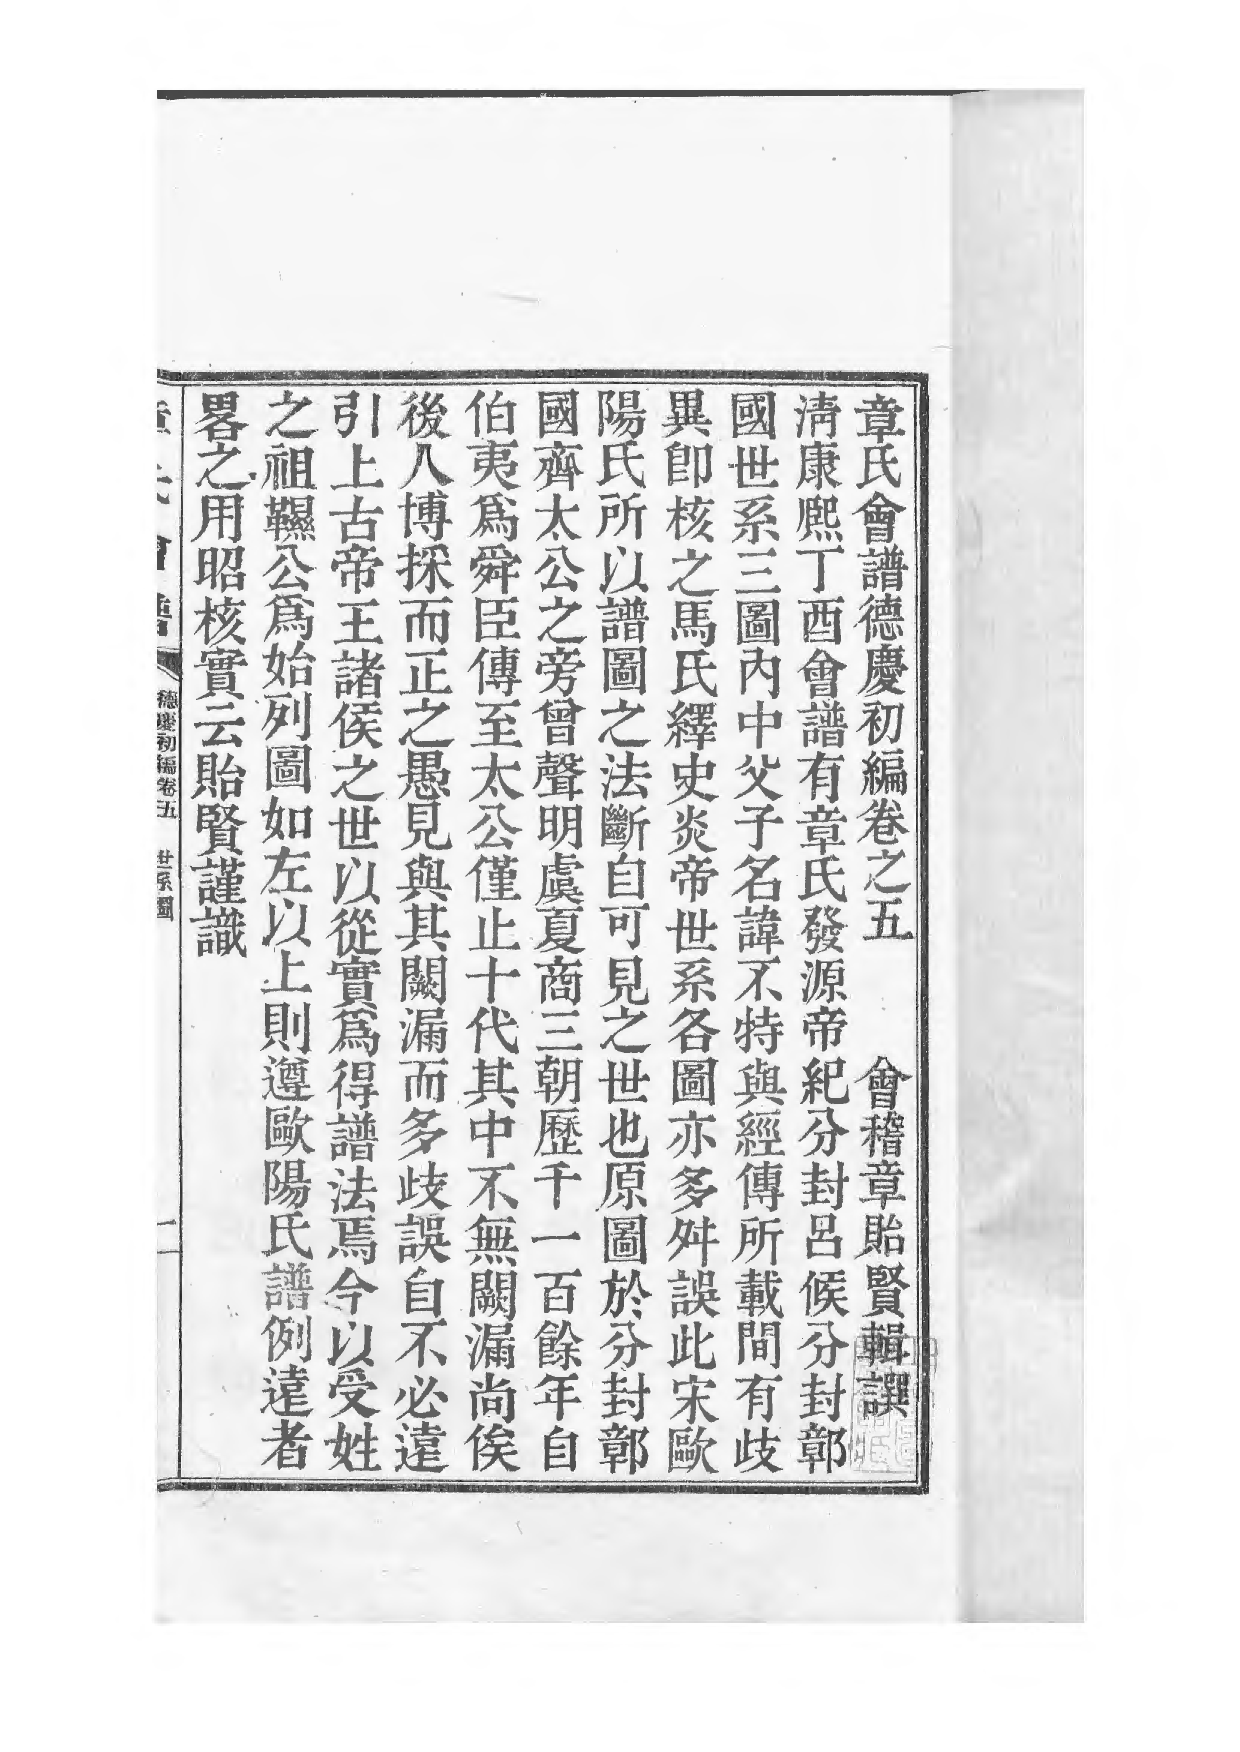 章氏會譜德慶初編卷之五　會稽章貽賢輯譔
淸康熙丁酉會譜有章氏發源帝紀分封呂侯分封鄣
國世系三圖內中父子名諱不特與經傳所載間有歧
異卽核之馬氏繹史炎帝世系各圖亦多舛誤此宋歐
陽氏所以譜圖之法斷自可見之世也原圖於分封鄣
國齊太公之旁曾聲明虞夏商三朝歷千一百餘年自
伯夷爲舜臣傳至太公僅止十代其中不無闕漏尙俟
後人博採而正之愚見與其闕漏而多歧誤自不必遠
引上古帝王諸侯之世以從實爲得譜法焉今以受姓
之祖韅公爲始列圖如左以上則遵歐陽氏譜例遠者
畧之用昭核實云貽賢謹識
章氏會譜　德慶初編卷五　世系圖　一